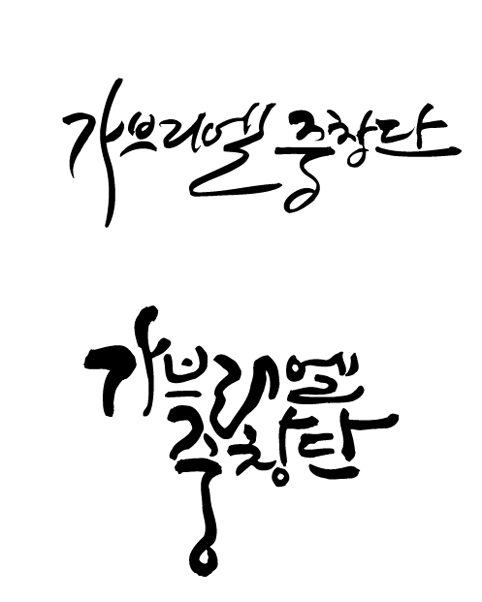 가브리엘 중창단
가브리엘
중창단